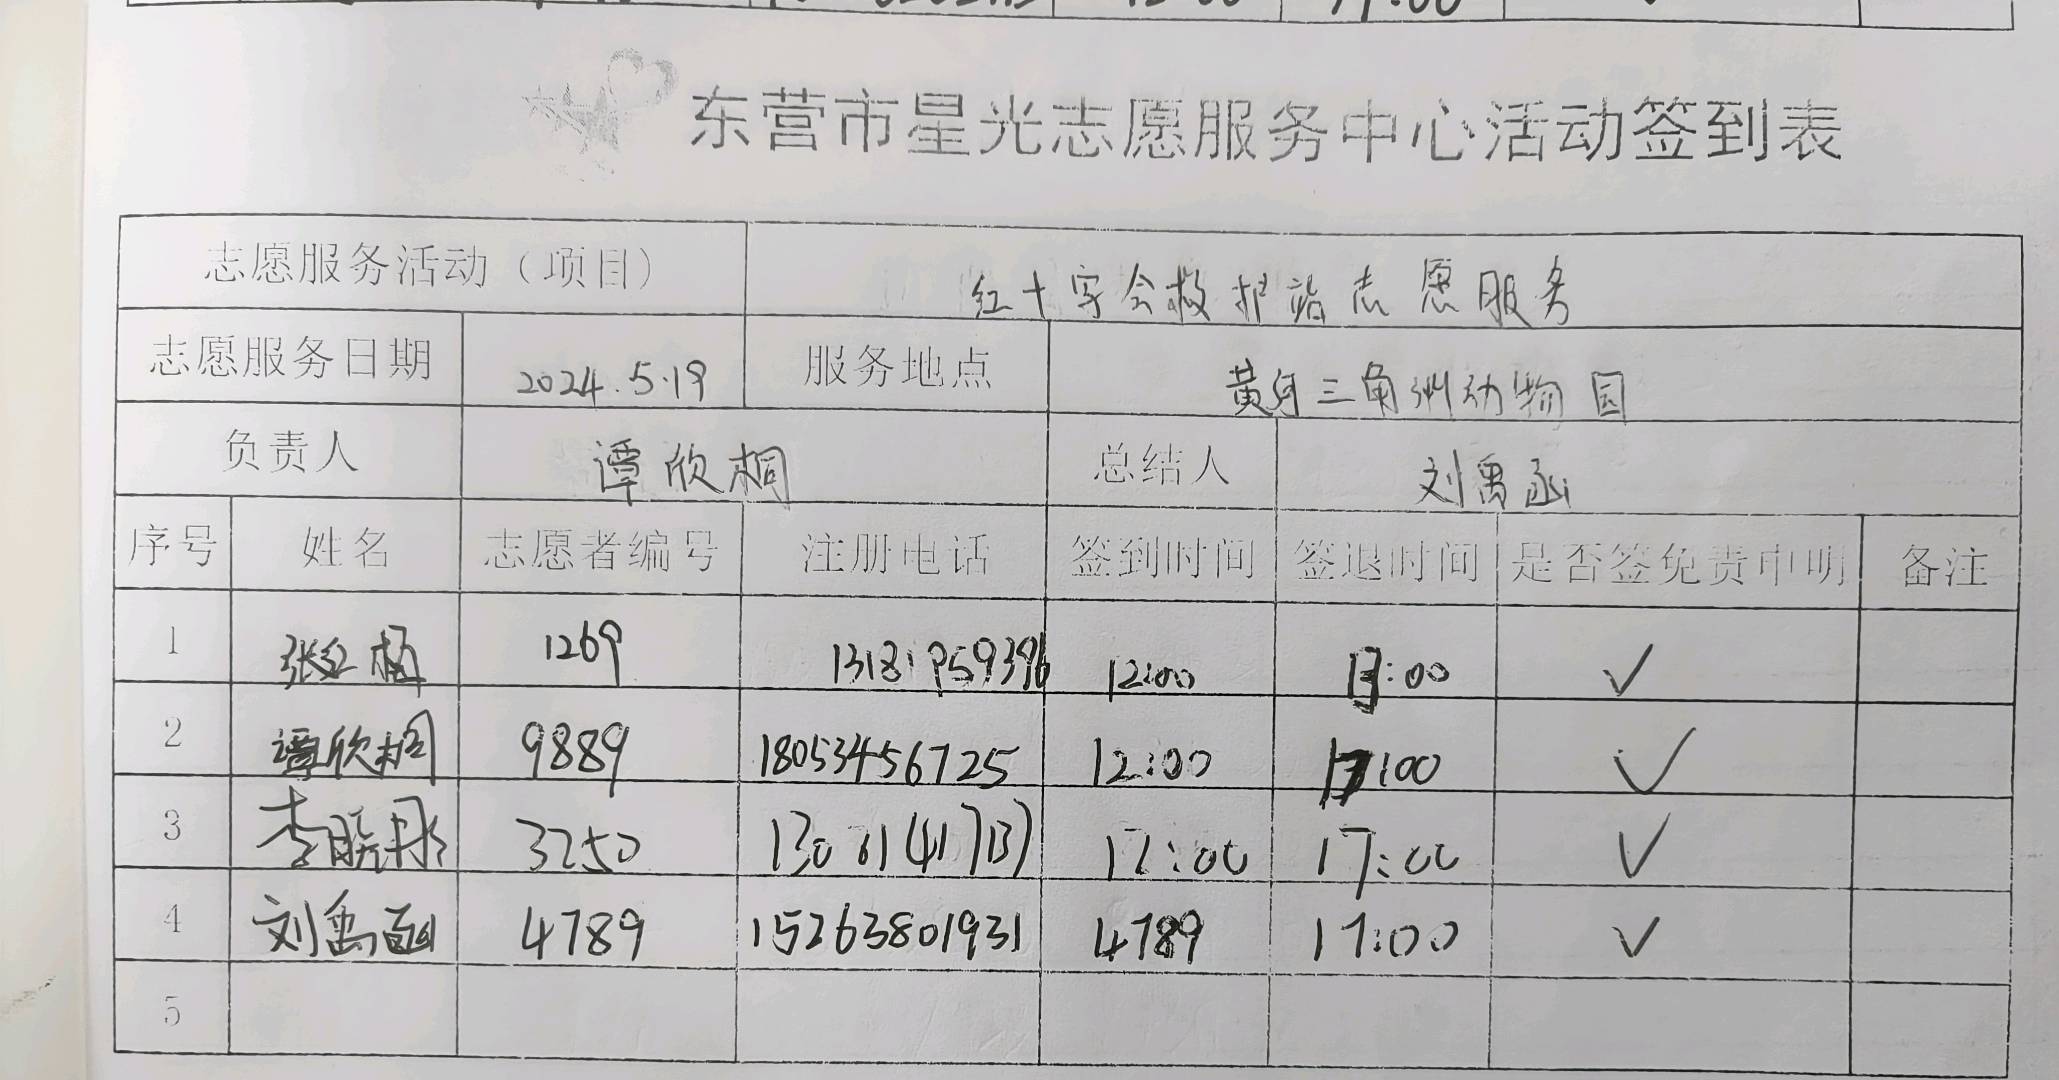 东营市星光志愿服务中心活动签到表
志愿服务活动（项目） 红十字会救护站志愿服务
志愿服务日期 2024.5.19 服务地点 黄河三角洲动物园
负责人 谭欣桐 总结人 刘禹函
序号 姓名 志愿者编号 注册电话 签到时间 签退时间 是否签免责申明 备注
1 1269 12:00 :00 ✓
2 谭欣桐 9889 18053456725 12:00 17:00 ✓
3 李晓彤 3250 12:00 17:00 ✓
4 刘禹函 4789 15263801931 4789 17:00 ✓
5